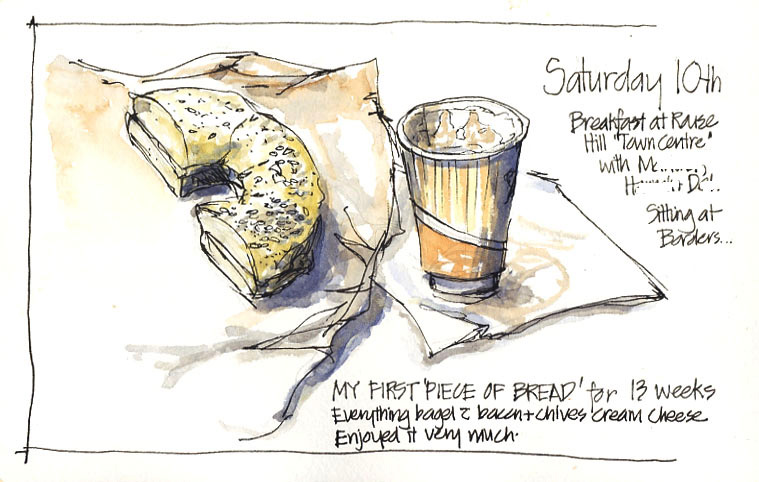 Saturday 10th
Breakfast at Rouse
Hill 'Town Centre'
with
Sitting at
Borders...
MY FIRST 'PIECE OF BREAD' for 13 weeks
Everything bagel & bacon + chives cream cheese
Enjoyed it very much.